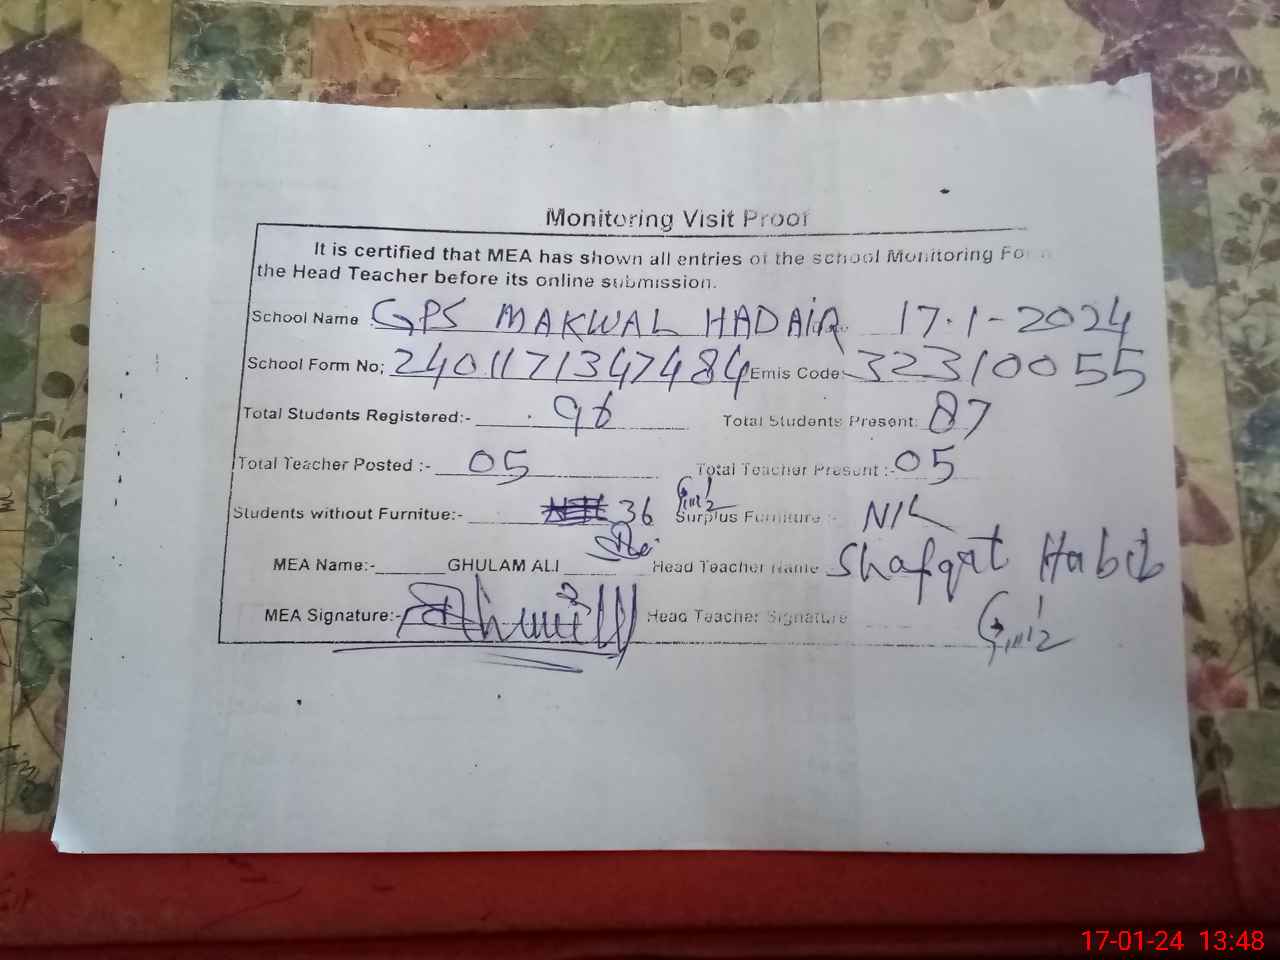 Monitoring Visit Proof
It is certified that MEA has shown all entries of the school Monitoring Form
the Head Teacher before its online submission.
School Name GPS MAKWAL HADAIR 17-1-2024
School Form No; 2401171347484 Emis Code: 32310055
Total Students Registered:- 96 Total Students Present: 87
Total Teacher Posted :- 05 Total Teacher Present :- 05
Students without Furnitue:- 36 Surplus Furniture :- NIL
MEA Name:- GHULAM ALI Head Teacher Name Shafqat Habib
MEA Signature:- Head Teacher Signature
17-01-24 13:48